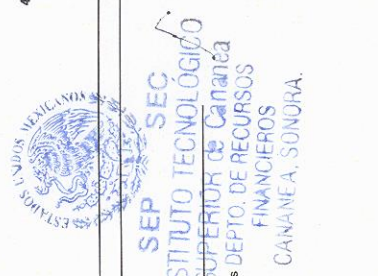 ESTADOS UNIDOS MEXICANOS
SEP SEC
STITUTO TECNOLÓGICO
SUPERIOR de Cananea
DEPTO. DE RECURSOS
FINANCIEROS
CANANEA, SONORA.